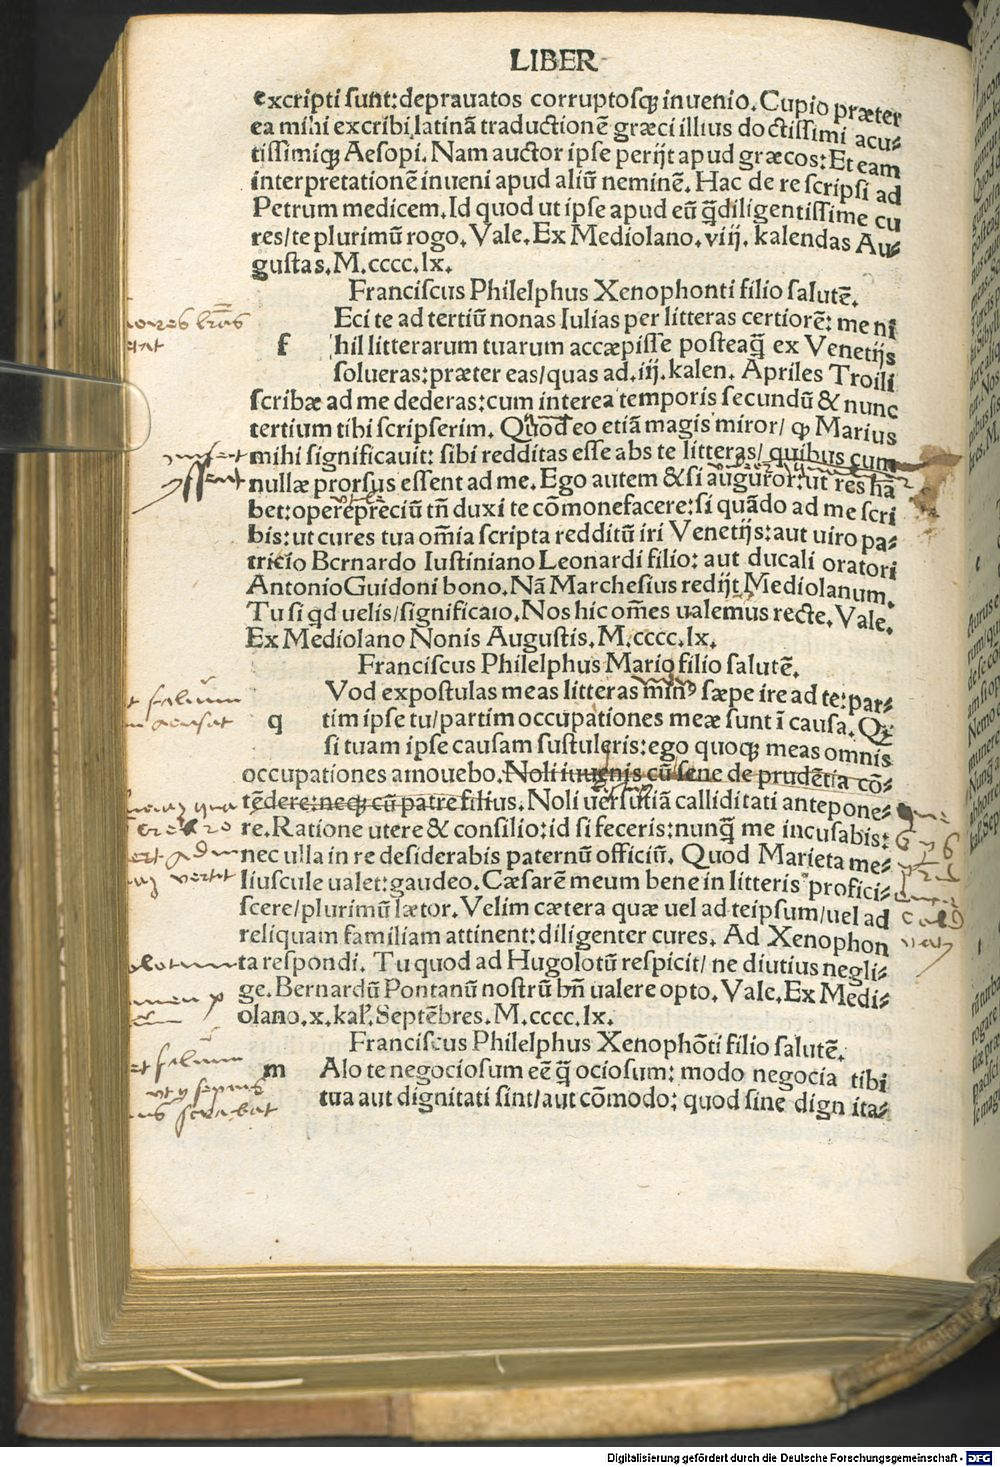 LIBER
excripti sunt:deprauatos corruptosqꝫ inuenio. Cupio præter
ea mihi excribi latinā traductionē græci illius doctissimi acu⸗
tissimiqꝫ Aesopi. Nam auctor ipse perijt apud græcos: Et eam
interpretationē inueni apud aliū neminē. Hac de re scripsi ad
Petrum medicem. Id quod ut ipse apud eū q̄diligentissime cu
res/te plurimū rogo. Vale. Ex Mediolano. viij. kalendas Au⸗
gustas. M.cccc.lx.
Franciscus Philelphus Xenophonti filio salutē.
f
Eci te ad tertiū nonas Iulias per litteras certiorē: me ni
hil litterarum tuarum accæpisse posteaq̄ ex Venetijs
solueras:præter eas/quas ad .iij. kalen. Apriles Troili
scribæ ad me dederas:cum interea temporis secundū & nunc
tertium tibi scripserim. Quod eo etiā magis miror/ ꝙ Marius
mihi significauit: sibi redditas esse abs te litteras/ quibus cum
nullæ prorsus essent ad me. Ego autem & si auguror:ut res ha
bet:operepreciū tn̄ duxi te cōmonefacere:si quādo ad me scri
bis:ut cures tua om̄ia scripta redditū iri Venetijs:aut uiro pa⸗
tricio Bernardo Iustiniano Leonardi filio: aut ducali oratori
Antonio Guidoni bono. Nā Marchesius redijt Mediolanum.
Tu si qd uelis/significato. Nos hic om̄es ualemus recte. Vale.
Ex Mediolano Nonis Augustis. M.cccc.lx.
Franciscus Philelphus Mario filio salutē.
q
Vod expostulas meas litteras minꝰ sæpe ire ad te:par⸗
tim ipse tu/partim occupationes meæ sunt ī causa. Qꝫ
si tuam ipse causam sustuleris:ego quoqꝫ meas omnis
occupationes amouebo. Noli iuuenis cū sene de prudētia cō⸗
tēdere:neqꝫ cū patre filius. Noli uersutiā calliditati antepone⸗
re. Ratione utere & consilio:id si feceris:nunq̄ me incusabis:
nec ulla in re desiderabis paternū officiū. Quod Marieta me⸗
liuscule ualet:gaudeo. Cæsarē meum bene in litteris profici⸗
scere/plurimū lætor. Velim cætera quæ uel ad teipsum/uel ad
reliquam familiam attinent:diligenter cures. Ad Xenophon
ta respondi. Tu quod ad Hugolotū respicit/ ne diutius negli⸗
ge. Bernardū Pontanū nostrū bn̄ ualere opto. Vale. Ex Medi⸗
olano.x.kal'. Septēbres. M.cccc.lx.
Franciscus Philelphus Xenophōti filio salutē.
m
Alo te negociosum eē q̄ ociosum: modo negocia tibi
tua aut dignitati sint/aut cōmodo: quod sine dignita⸗
Digitalisierung gefördert durch die Deutsche Forschungsgemeinschaft - DFG